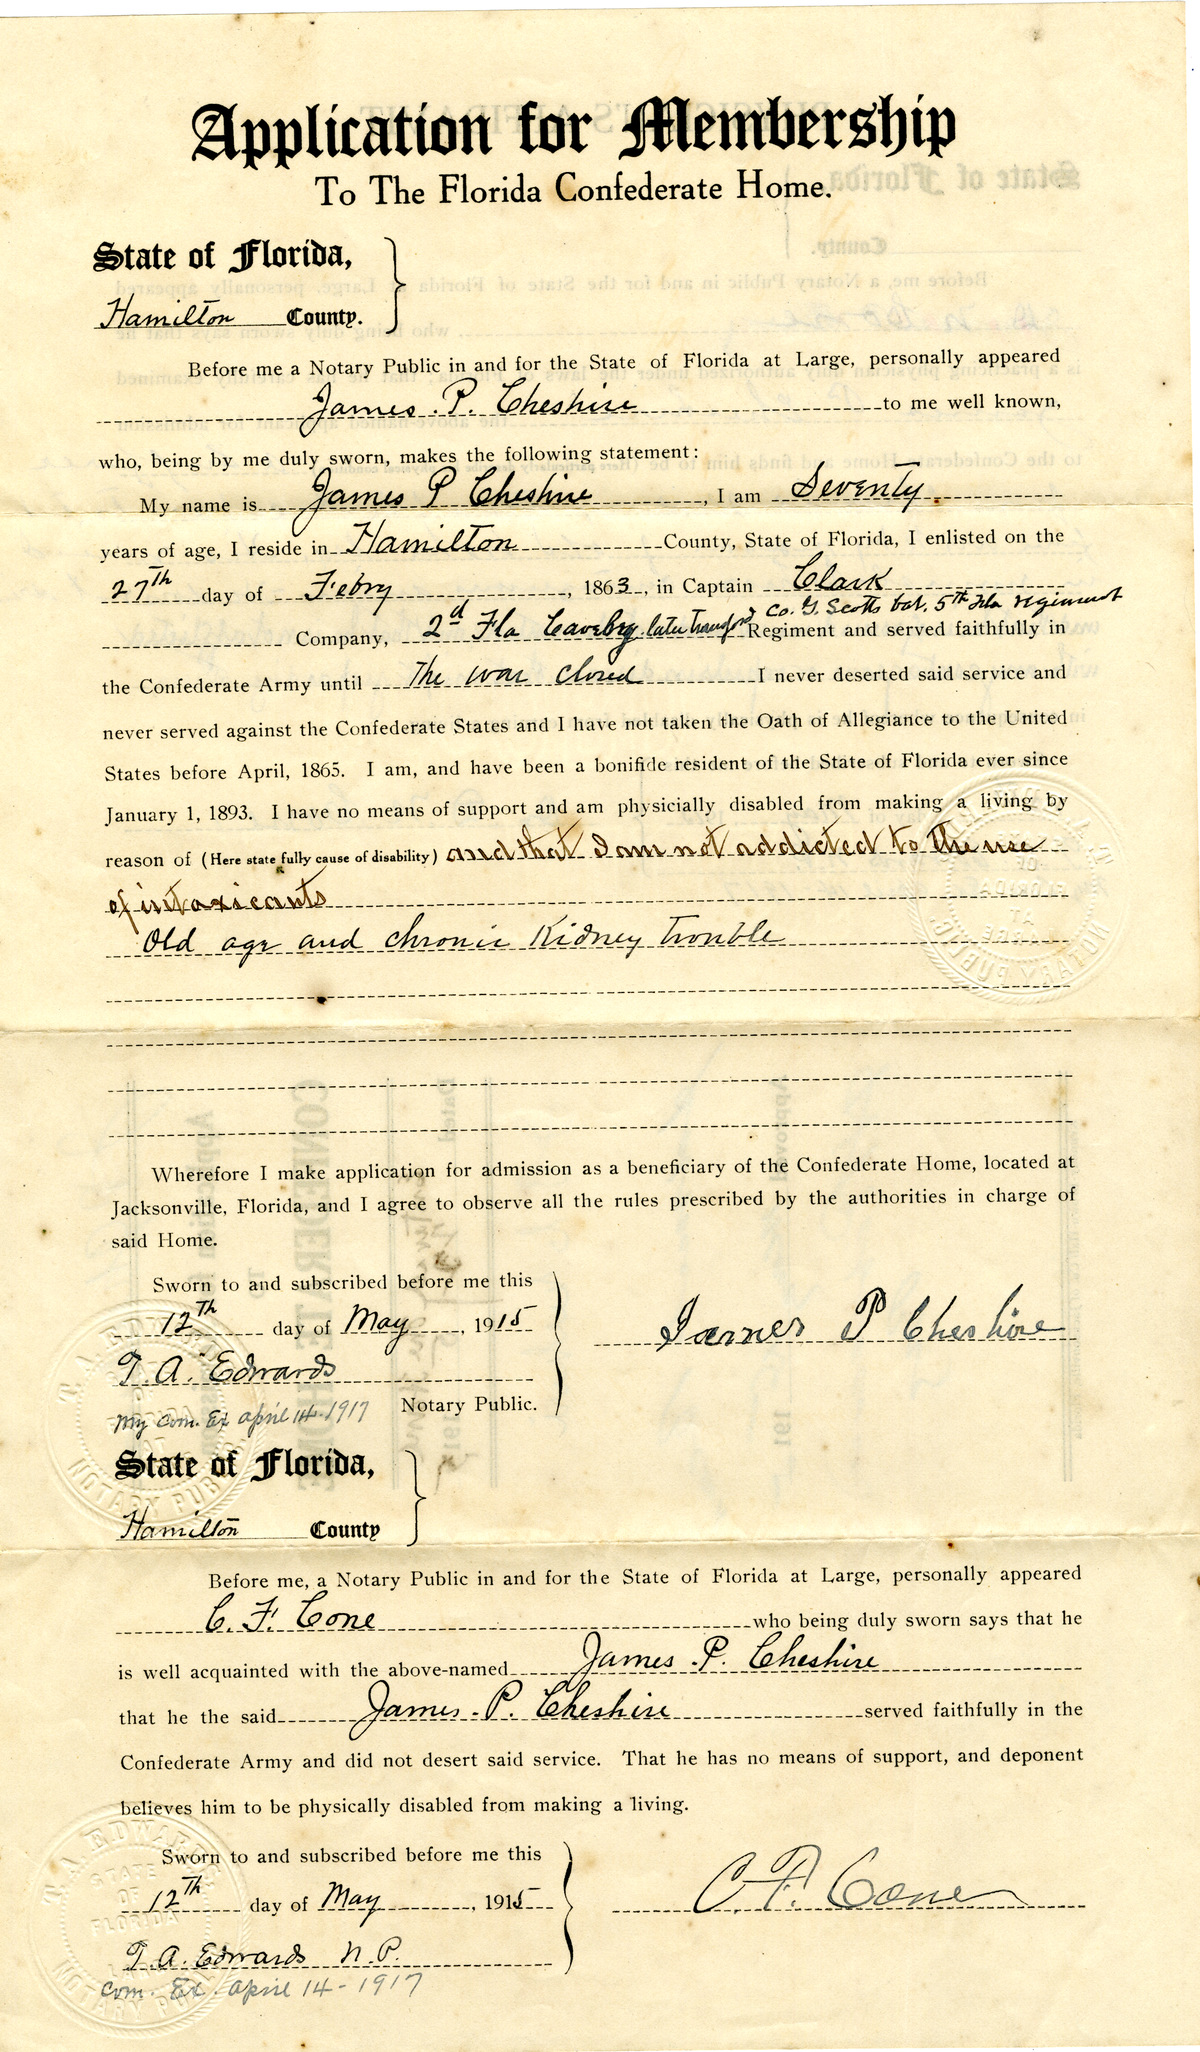 Application for Membership
To The Florida Confederate Home.
State of Florida,
Hamilton County.
Before me a Notary Public in and for the State of Florida at Large, personally appeared
James. P. Cheshire to me well known,
who, being by me duly sworn, makes the following statement:
My name is James P Cheshire, I am Seventy
years of age, I reside in Hamilton County, State of Florida, I enlisted on the
27th day of Febry, 1863, in Captain Clark
Co. G. Scotts bat. 5th Fla regiment
Company, 2d Fla Regiment and served faithfully in
the Confederate Army until The war closed I never deserted said service and
never served against the Confederate States and I have not taken the Oath of Allegiance to the United
States before April, 1865. I am, and have been a bonifide resident of the State of Florida ever since
January 1, 1893. I have no means of support and am physicially disabled from making a living by
reason of (Here state fully cause of disability) and that I am not addicted to the use
of intoxicants
Old age and chronic Kidney trouble
Wherefore I make application for admission as a beneficiary of the Confederate Home, located at
Jacksonville, Florida, and I agree to observe all the rules prescribed by the authorities in charge of
said Home.
Sworn to and subscribed before me this
12th day of May, 1915
James P Cheshire
T. A. Edwards
Notary Public.
My Com. Ex april 14-1917
State of Florida,
Hamilton County
Before me, a Notary Public in and for the State of Florida at Large, personally appeared
C. F. Cone who being duly sworn says that he
is well acquainted with the above-named James. P. Cheshire
that he the said James. P. Cheshire served faithfully in the
Confederate Army and did not desert said service. That he has no means of support, and deponent
believes him to be physically disabled from making a living.
Sworn to and subscribed before me this
12th day of May, 1915
C. F. Cone
T. A. Edwards N. P.
Com. Ex. april 14-1917